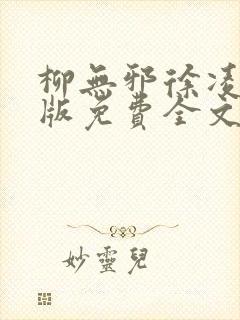 柳無邪徐凌
版免費全文
妙靈兒